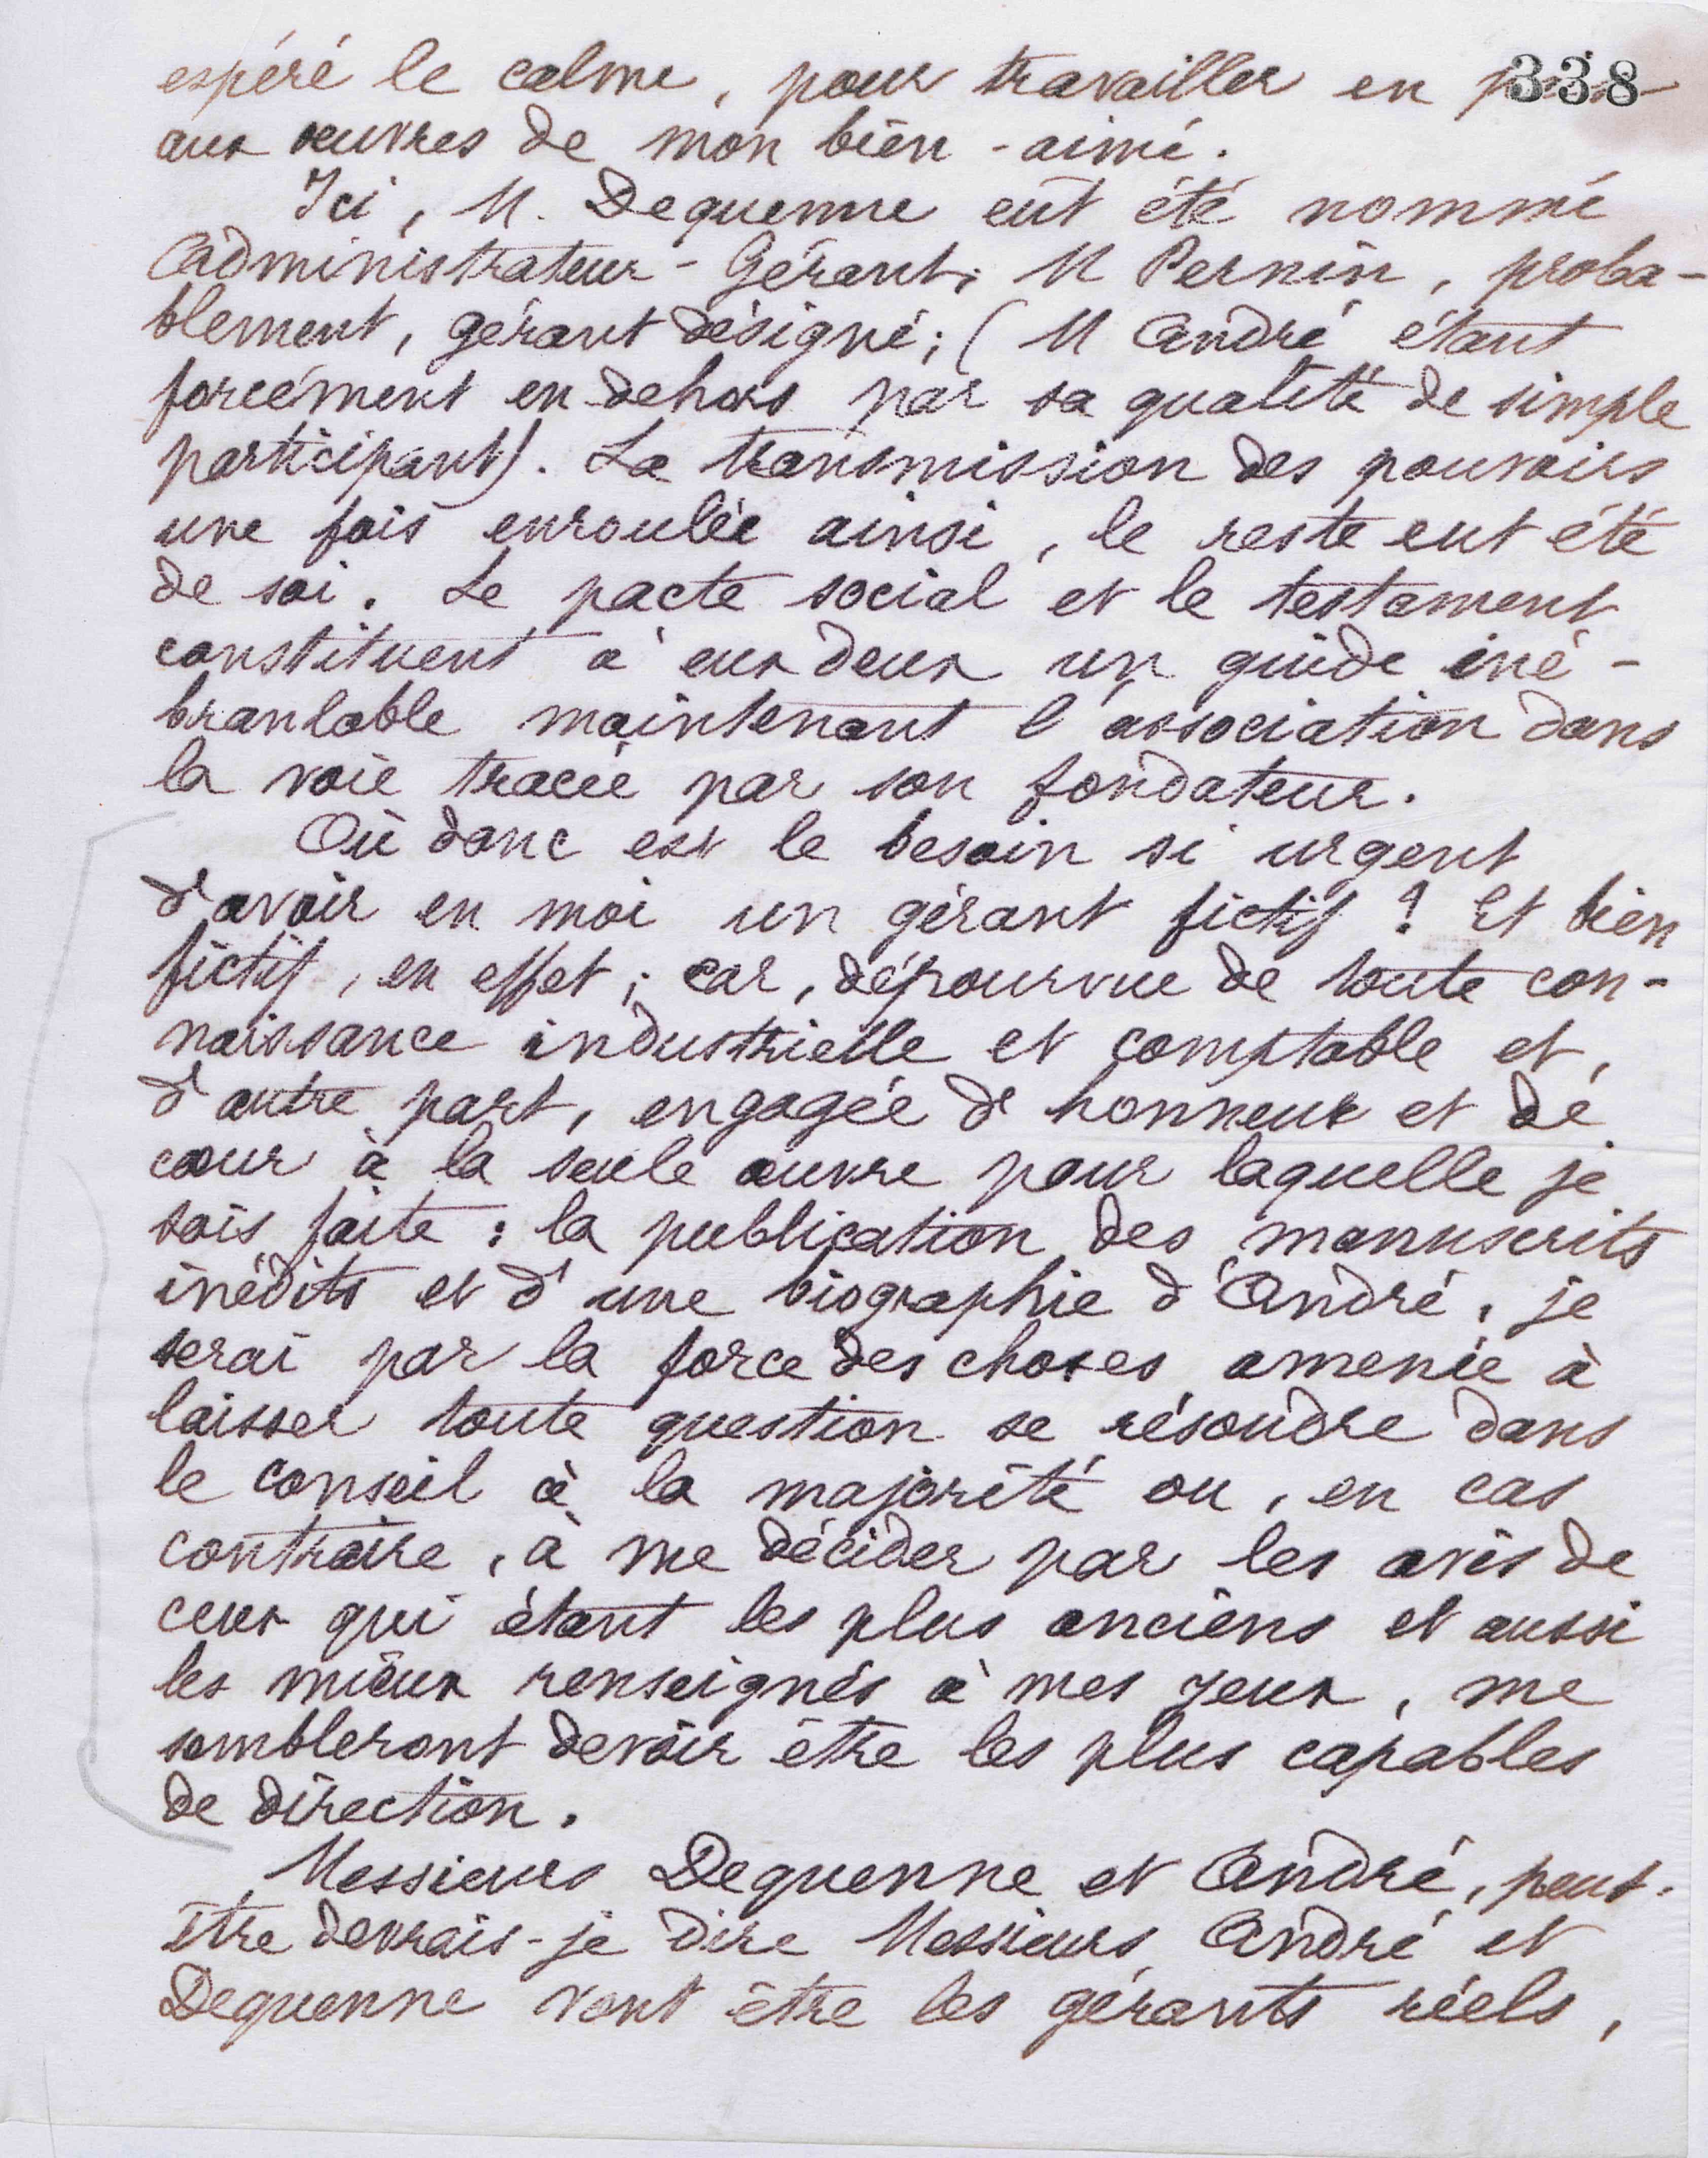 espéré le calme, pour travailler en 338
aux œuvres de mon bien-aimé.
Ici, M. Dequenne eût été nommé
Administrateur-Gérant; M Pernin, proba-
blement, gérant désigné; (M André étant
forcément en dehors par sa qualité de simple
participant). La transmission des pouvoirs
une fois enroulée ainsi, le reste eut été
de soi. Le pacte social et le testament
constituent à eux deux un guide iné-
branlable maintenant l'association dans
la voie tracée par son fondateur.
Où donc est le besoin si urgent
d'avoir en moi un gérant fictif? Et bien
fictif, en effet; car, dépourvue de toute con-
naissance industrielle et comptable et,
d'autre part, engagée d'honneur et de
cœur à la seule œuvre pour laquelle je
sois faite: la publication des manuscrits
inédits et d'une biographie d'André, je
serai par la force des choses amenée à
laisser toute question se résoudre dans
le conseil à la majorité ou, en cas
contraire, à me décider par les avis de
ceux qui étant les plus anciens et aussi
les mieux renseignés à mes yeux, me
sembleront devoir être les plus capables
de direction.
Messieurs Dequenne et André, peut-
être devrais-je dire Messieurs André et
Dequenne vont être les gérants réels,